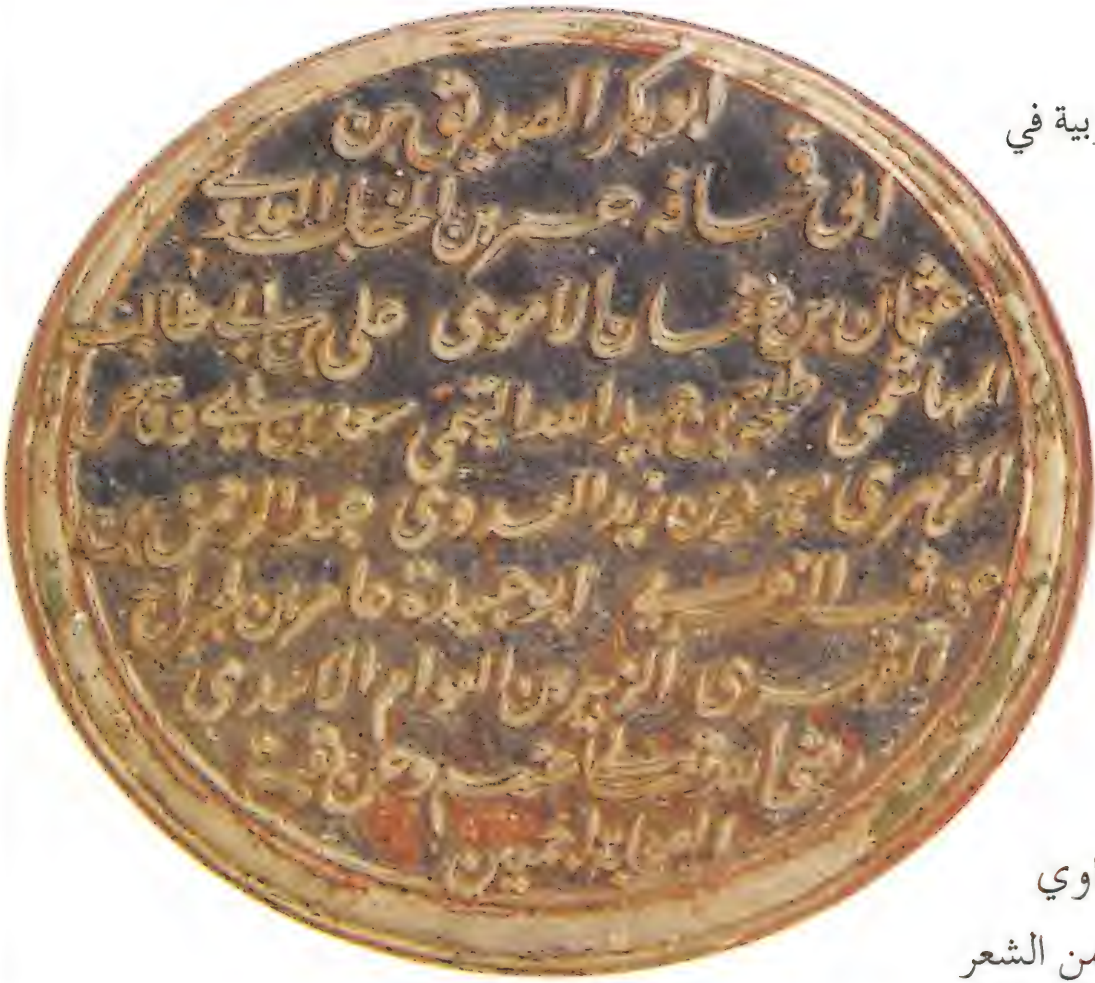 ابو بكر الصديق بن
ابى قحافه عمر بن الخطاب العدوي
عثمان بن عفان الاموى على بن ابي طالب
الهاشمى طلحة بن عبيد الله التيمى سعد بن ابي وقاص
الزهرى سعيد بن زيد العدوى عبد الرحمن بن
عوف الزهري ابو عبيدة عامر بن الجراح
الفهرى الزبير بن العوام الاسدي
رضي الله عنهم وعن
الصحابة اجمعين
ربية في
اوي
من الشعر